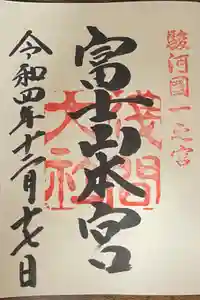 駿河國一之宮
富士山本宮
浅間大社
令和四年十二月十七日